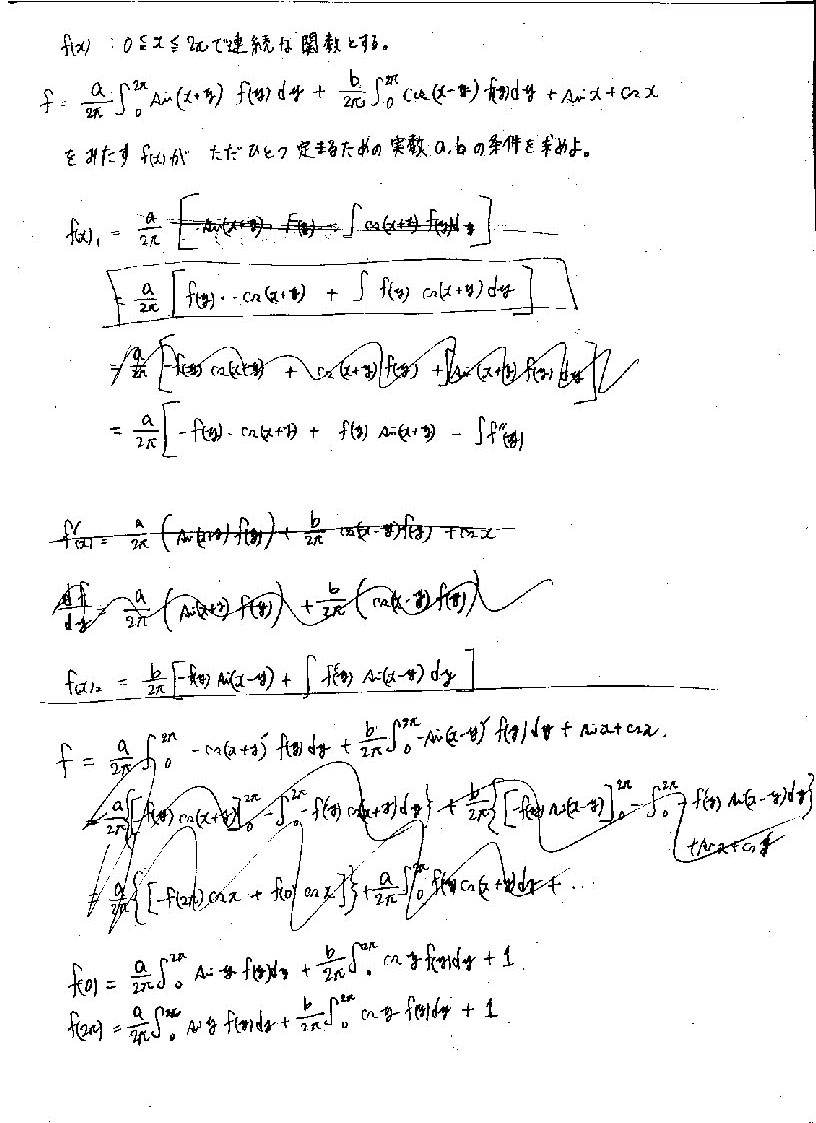 f(x) : 0≦x≦2πで連続な関数とする。
f = a/2π ∫₀^2π sin(x+y) f(y) dy + b/2π ∫₀^2π cos(x-y) f(y) dy + sin x + cos x
をみたす f(x)が ただひとつ定まるための実数 a, b の条件を求めよ。
f(x)₁ = a/2π [ sin(x+y) F(y) - ∫ cos(x+y) f(y) dy ]
= a/2π [ f(y)·-cos(x+y) + ∫ f(y) cos(x+y) dy ]
= a/2π [ -f(y) cos(x+y) +
= a/2π [ -f(y)·cos(x+y) + f(y) sin(x+y) - ∫ f''(y)
f'(x) = a/2π ( sin(x+y) f(y) ) + b/2π cos(x-y) f(y) + cos x
df/dy = a/2π ( sin(x+y) f(y) ) + b/2π ( cos(x-y) f(y) )
f(x)₂ = b/2π [ -f(y) sin(x-y) + ∫ f'(y) sin(x-y) dy ]
f = a/2π ∫₀^2π -cos(x+y)' f(y) dy + b/2π ∫₀^2π -sin(x-y)' f(y) dy + sin x + cos x.
= a/2π { [-f(y) cos(x+y)]₀^2π - ∫₀^2π -f'(y) cos(x+y) dy } + b/2π { [-f(y) sin(x-y)]₀^2π - ∫₀^2π - f'(y) sin(x-y) dy }
+ sin x + cos y
= a/2π { [-f(2π) cos x + f(0) cos x ] } + a/2π ∫₀^2π f'(y) cos(x+y) dy + ...
f(0) = a/2π ∫₀^2π sin y f(y) dy + b/2π ∫₀^2π cos y f(y) dy + 1
f(2π) = a/2π ∫₀^2π sin y f(y) dy + b/2π ∫₀^2π cos y f(y) dy + 1